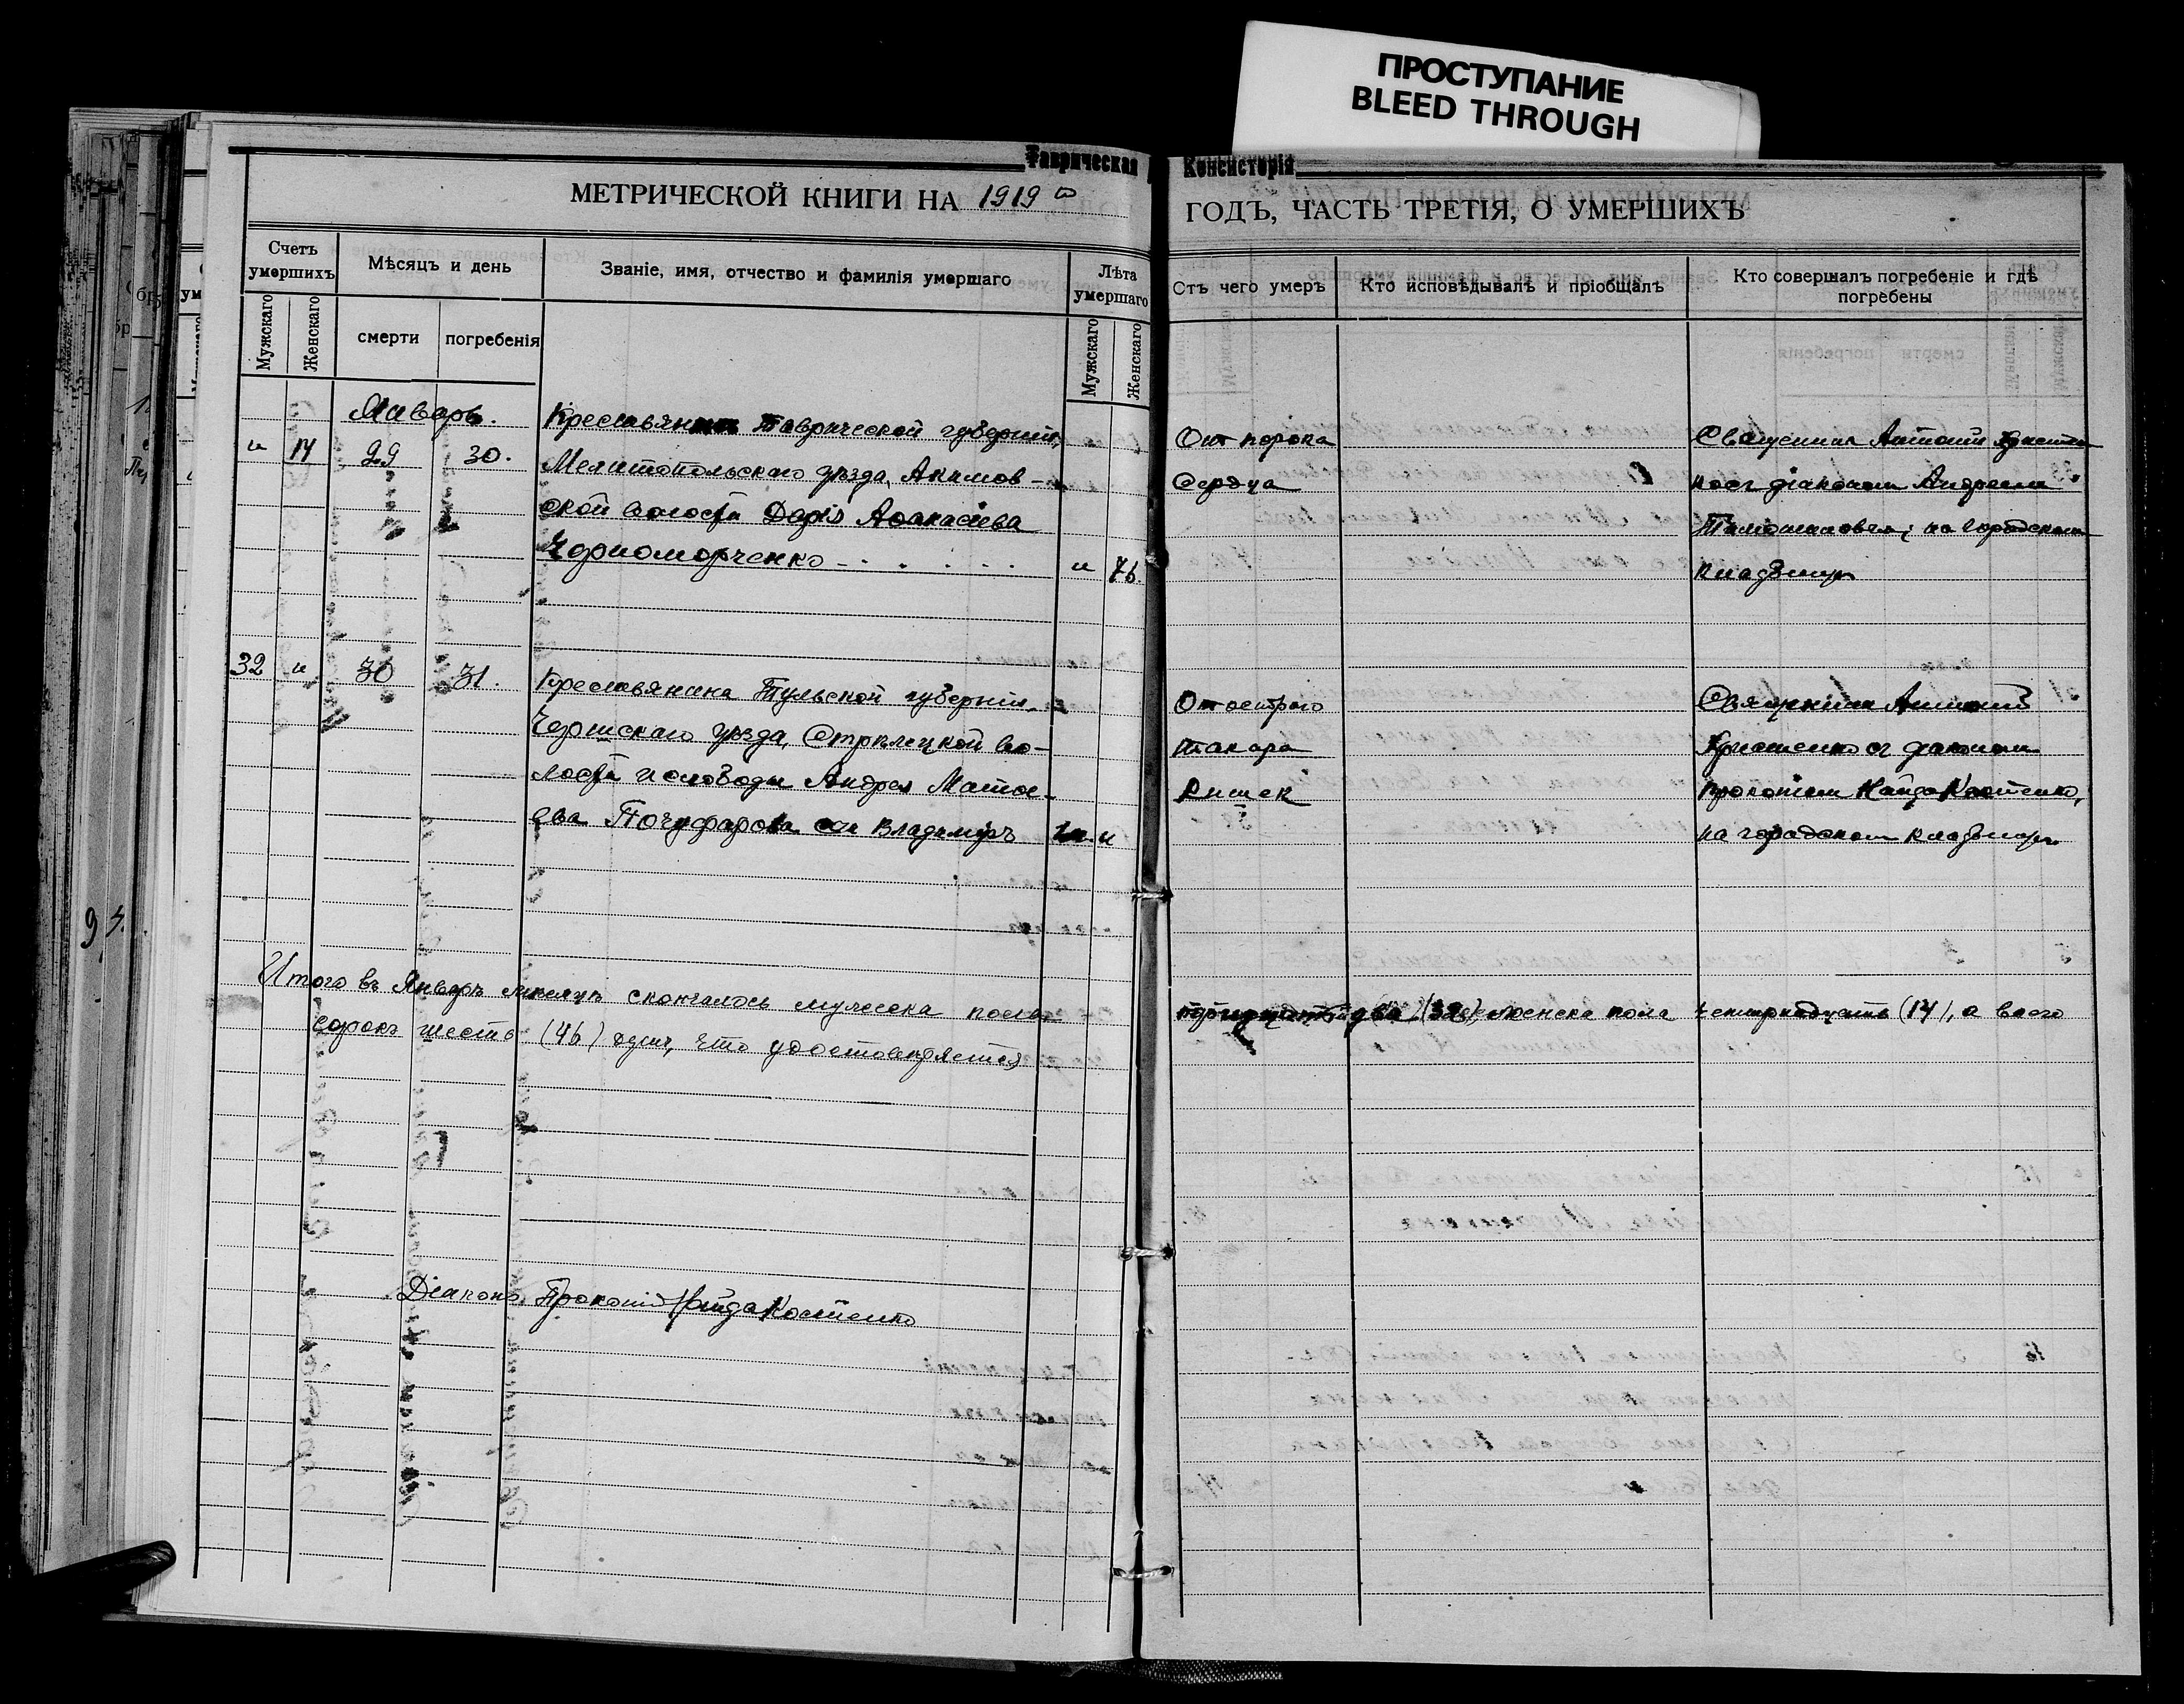 ПРОСТУПАНИЕ
BLEED THROUGH
Таврическая Консисторія
МЕТРИЧЕСКОЙ КНИГИ НА 1919 й
ГОДЪ, ЧАСТЬ ТРЕТІЯ, О УМЕРШИХЪ
Счетъ умершихъ
Мѣсяцъ и день
Званіе, имя, отчество и фамилія умершаго
Лѣта умершаго
Мужскаго
Женскаго
смерти
погребенія
Мужскаго
Женскаго
Отъ чего умеръ
Кто исповѣдывалъ и пріобщалъ
Кто совершалъ погребеніе и гдѣ погребены
Январь.
и 14 29 30.
Крестьянка Таврической губерніи,
Мелитопольскаго уѣзда, Акимов-
ской волости Дарія Аѳанасіева
Черноморченко и 76
От порока
Сердца
Священник Антоній
діаконом Андреем
на городском
кладбищѣ
32 и 30 31.
Крестьянина Тульской губерніи
Чернскаго уѣзда, Стрѣлецкой во-
лости и слободы Андрея Матѳе-
ева сын Владиміръ и
От остраго
катара
кишек
Священник Антоній
съ діаконом
Прокопіем Найда Костенко,
на городском кладбищѣ
Итого въ Январѣ мѣсяцѣ скончалось мужеска пола тридцать два (32), женска пола четырнадцать (14), а всего
сорокъ шесть (46) душ, что удостовѣряется
Діаконъ Прокопій Найда Костенко
9